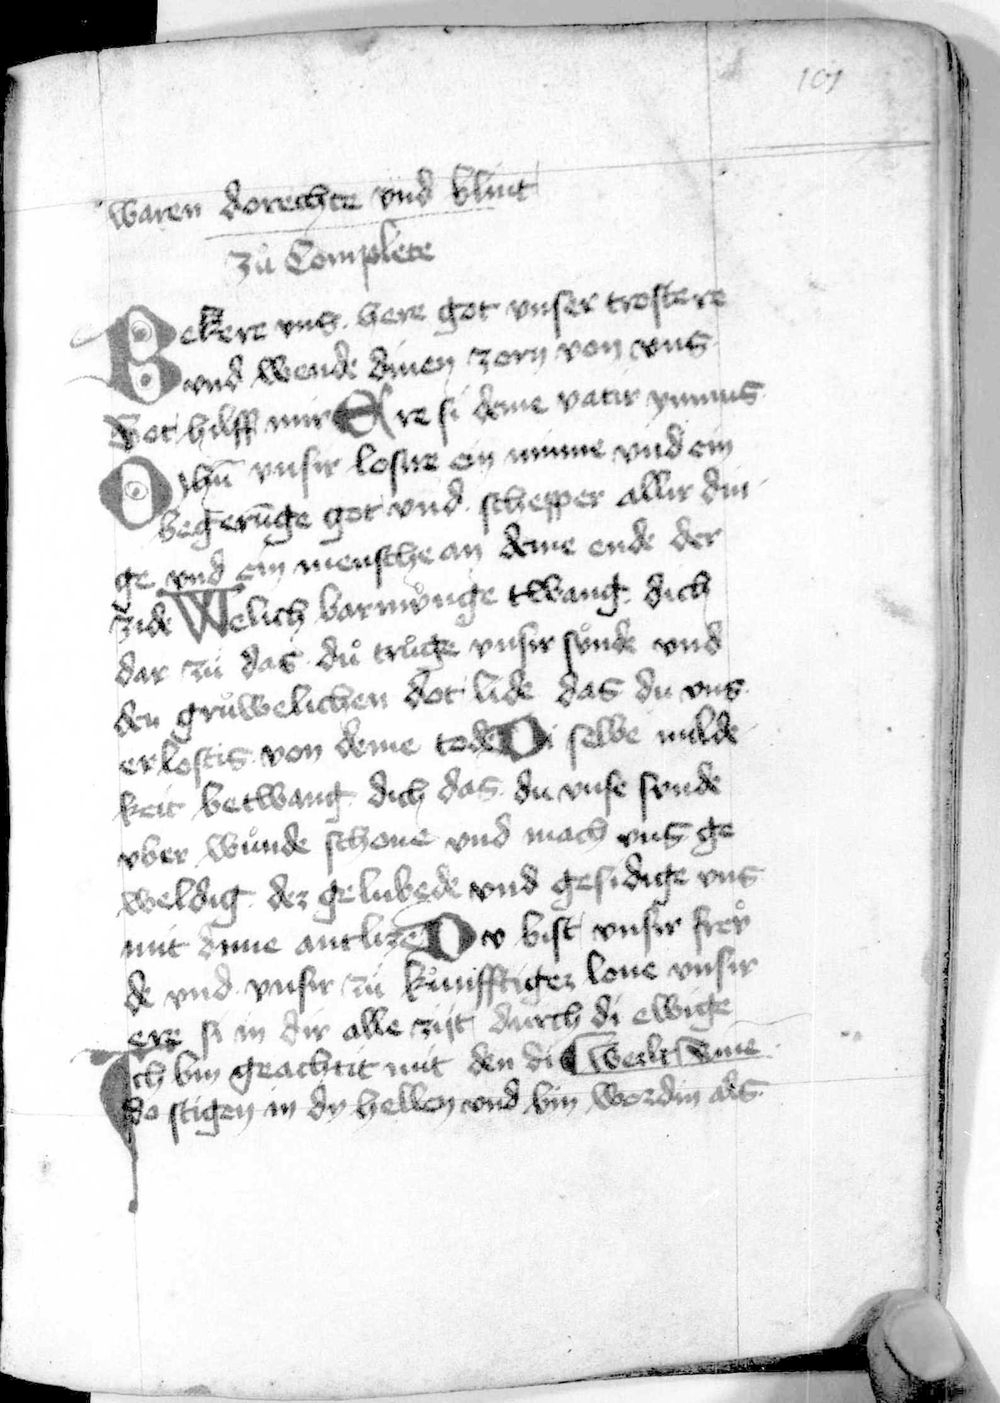 101
waren dorechte vnd blint
zů Complete
Bekere vns here got vnser trostere
vnd wende dinen zorn von vns
Got hilff mir Ere si deme vatir ymnus
O ihū vnsir losire ein minne vnd ein
begerūge got vnd schepper allir din
ge vnd ein mensche an deme ende der
zide Welich barmůnge twang dich
dar zů das dů trůge vnsir sůnde vnd
den grůwelichen dot lide das du vns
erlostis von deme tode Di selbe milde
keit betwang dich das du vnse sunde
vber wůnde schone vnd mach vns ge
weldig dez gelubede vnd gesidige vns
mit dime antlize Dv bist vnsir frev̊
de vnd vnsir zů kůnifftigez lone vnsir
ere si in dir alle zijt durch di ewige
Ich bin geachtit mit den di werlt
do stigen in dy hellen vnd bin wordin als